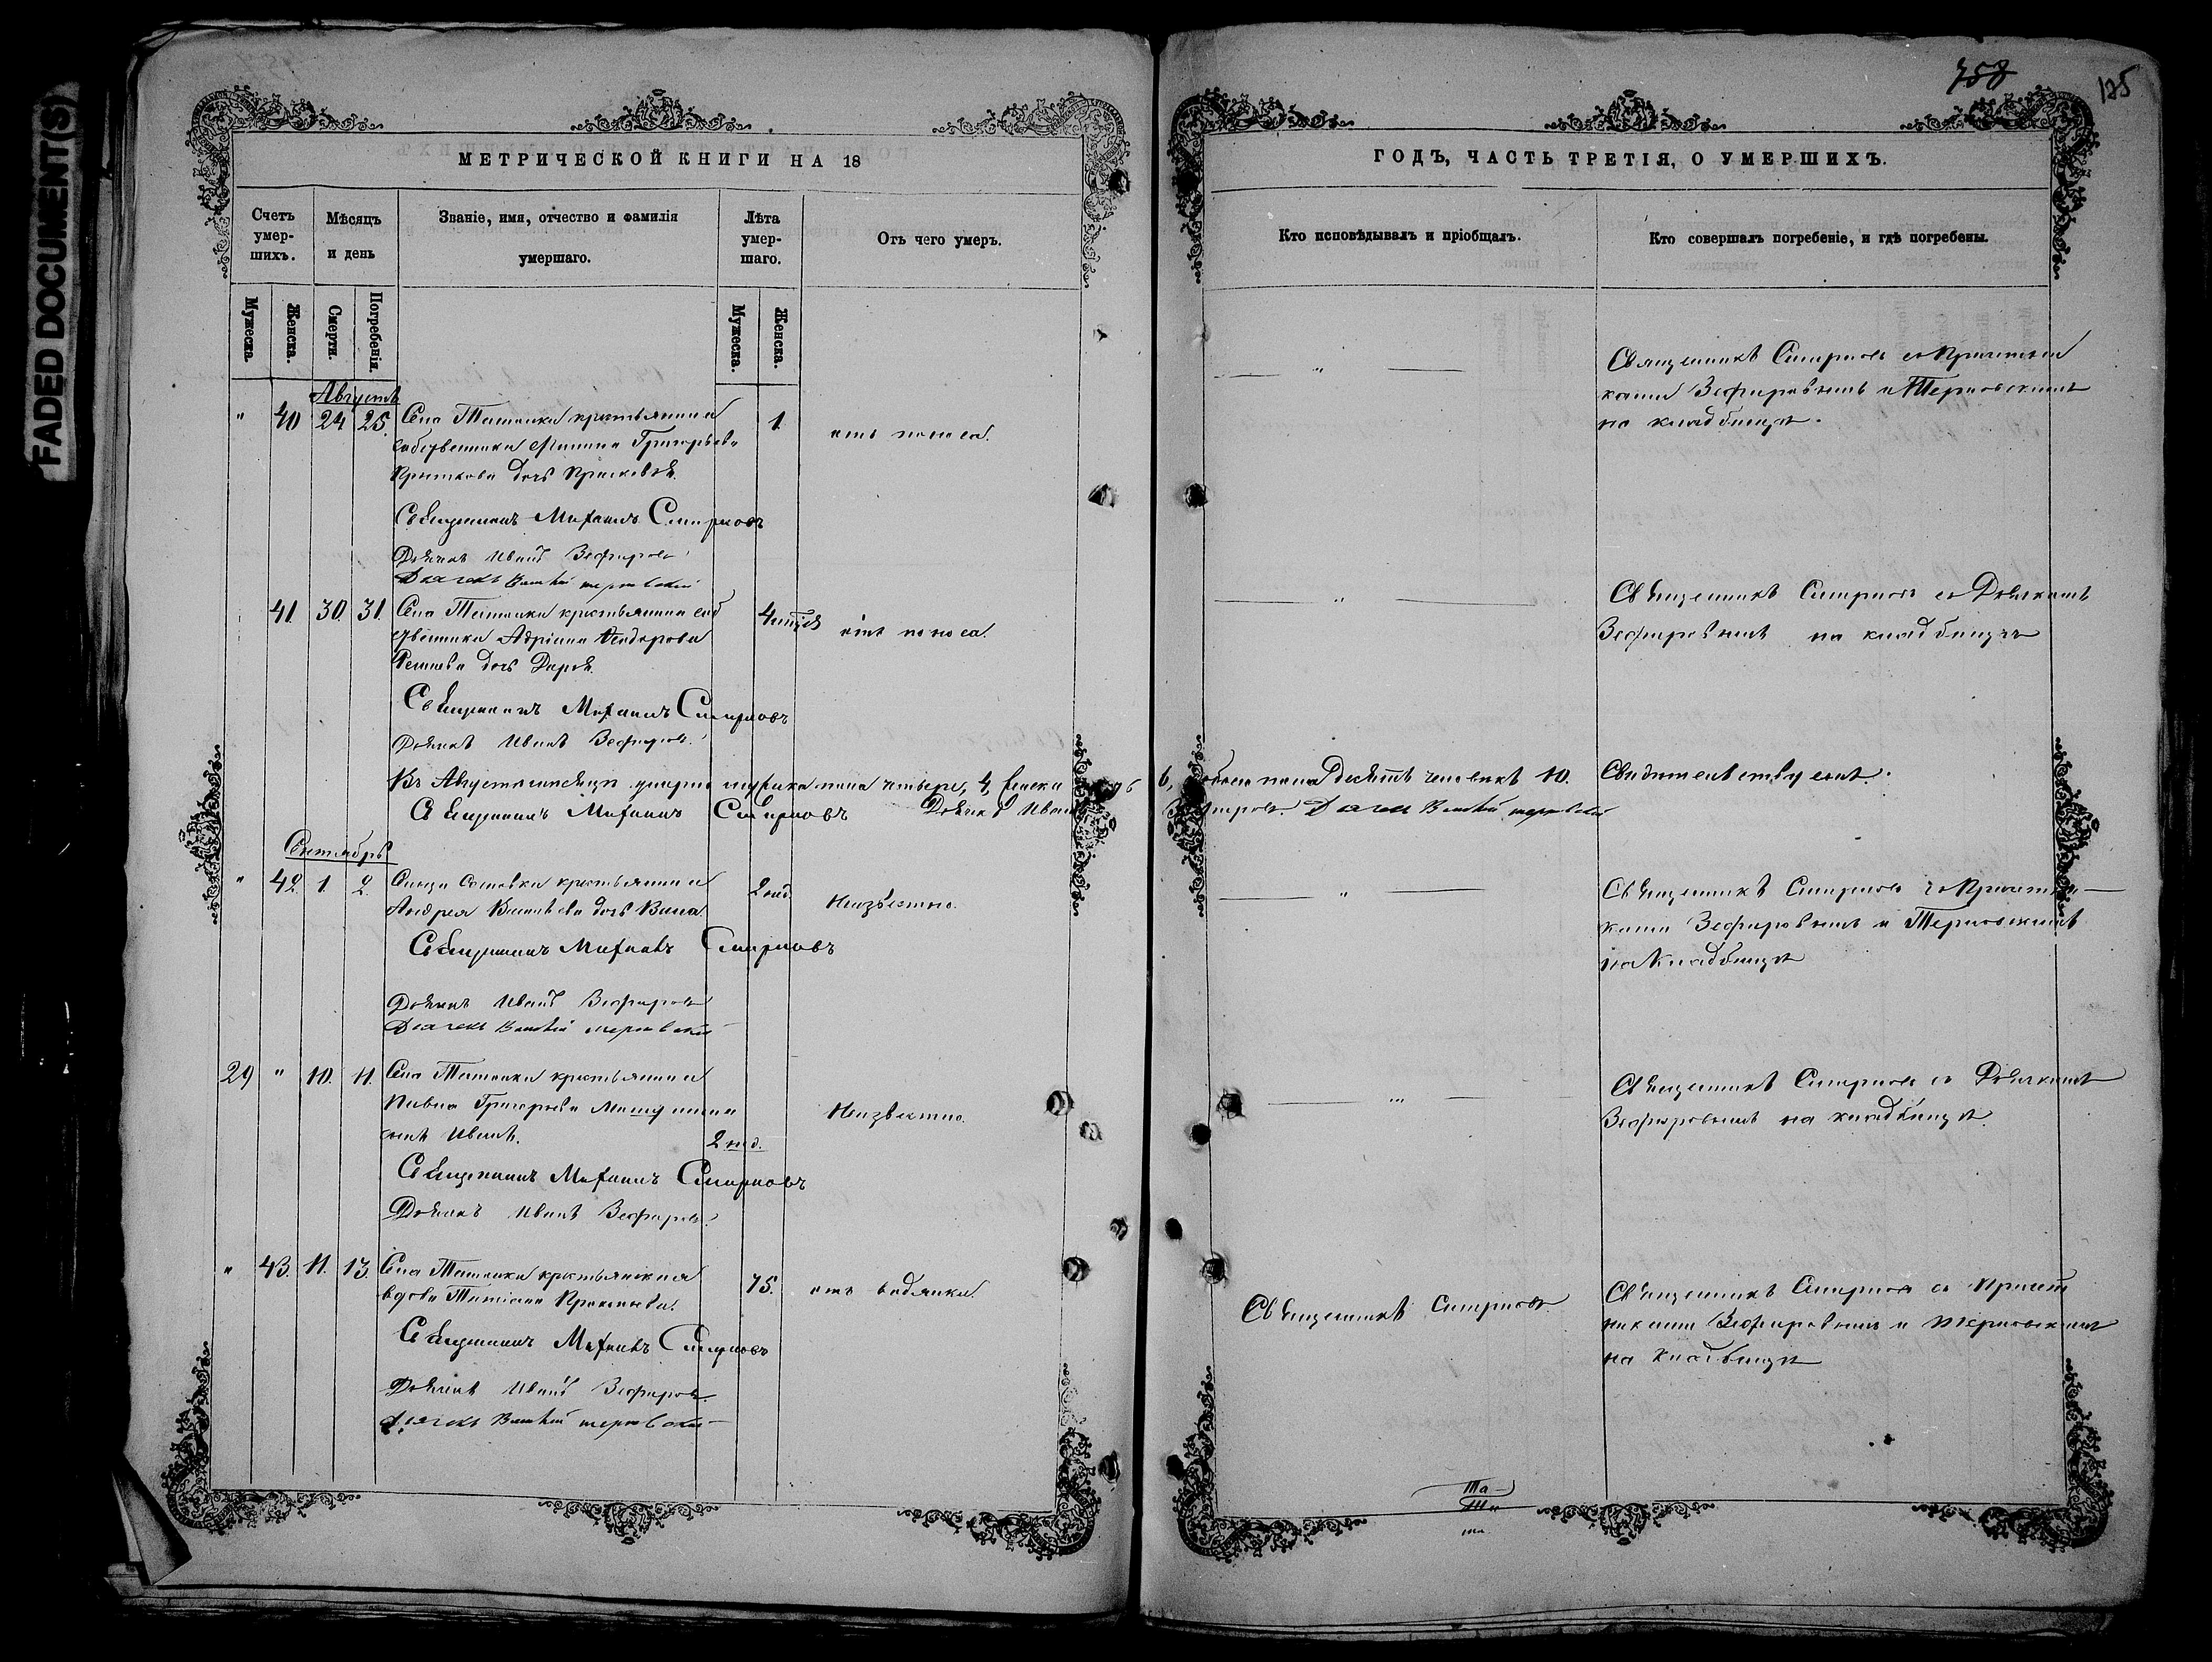 FADED DOCUMENT(S)
758
125
МЕТРИЧЕСКОЙ КНИГИ НА 18
ГОДЪ, ЧАСТЬ ТРЕТІЯ, О УМЕРШИХЪ.
Счетъ умер-шихъ.
Мѣсяцъ и день
Званіе, имя, отчество и фамилія умершаго.
Лѣта умер-шаго.
Отъ чего умеръ.
Кто исповѣдывалъ и пріобщалъ.
Кто совершалъ погребеніе, и гдѣ погребены.
Мужеска.
Женска.
Смерти.
Погребенія.
Мужеска.
Женска.
Августъ
" 40 24 25. Села крестьянина 1. отъ поноса. "
Григорьева
дочь Прасковья.
Священникъ Смирновъ съ Причетни
ками Зефировымъ и Терновскимъ
на кладбищѣ.
Священникъ Михаилъ Смирновъ
Дьячекъ Иванъ Зефировъ
41. 30. 31. Села крестьянина соб отъ поноса. "
ственника Адріана Ѳеодорова
дочь Дарья.
Священникъ Смирновъ съ Дьячкомъ
Зефировымъ на кладбищѣ
Священникъ Михаилъ Смирновъ
Дьячекъ Иванъ Зефировъ.
Въ Августѣ мѣсяцѣ умерло мужеска пола четыре, 4, женска 6, обоего пола десять человѣкъ 10. Свидѣтельствуемъ.
Священникъ Михаилъ Смирновъ Дьячекъ Иванъ Зефировъ.
Сентябрь
" 42. 1. 2. крестьянина 2 нед. Неизвѣстно. "
Андрея дочь
Священникъ Смирновъ съ Причетни
ками Зефировымъ и Терновскимъ
на кладбищѣ
Священникъ Михаилъ Смирновъ
Дьячекъ Иванъ Зефировъ
29 " 10. 11. Села крестьянина Неизвѣстно. "
Павла Григорьева
сынъ Иванъ. 2 нед.
Священникъ Смирновъ съ Дьячкомъ
Зефировымъ на кладбищѣ.
Священникъ Михаилъ Смирновъ
Дьячекъ Иванъ Зефировъ.
" 43. 11. 13. Села крестьянская 75. отъ водянки. Священникъ Смирновъ.
вдова Татіана
Священникъ Смирновъ съ Причет
никами Зефировымъ и Терновскимъ
на кладбищѣ
Священникъ Михаилъ Смирновъ
Дьячекъ Иванъ Зефировъ.